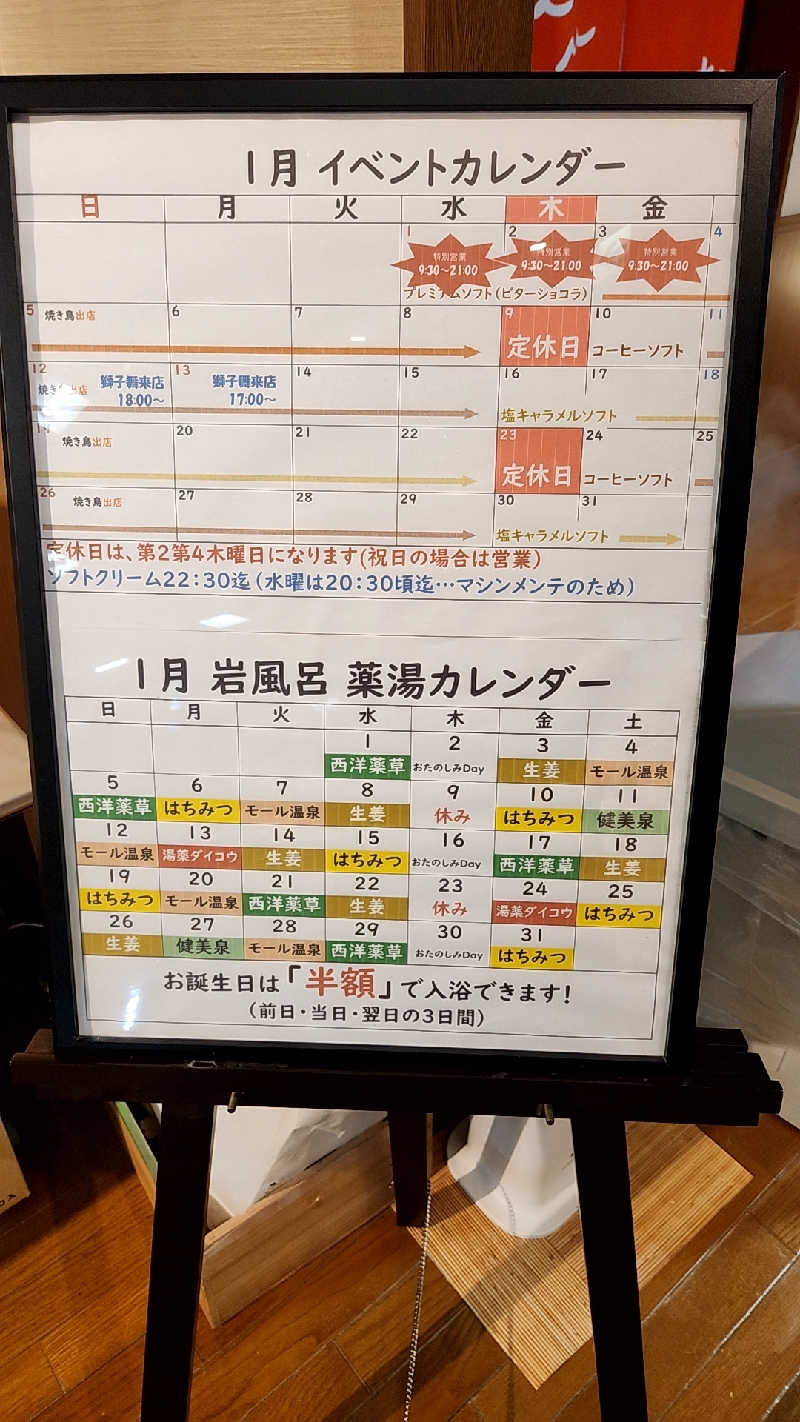 1月 イベントカレンダー
日 月 火 水 木 金
1 2 3 4
特別営業 特別営業 特別営業
9:30～21:00 9:30～21:00 9:30～21:00
プレミアムソフト(ビターショコラ)
5 焼き鳥出店 6 7 8 9 10 11
定休日 コーヒーソフト
12 13 14 15 16 17 18
焼き鳥出店 獅子舞来店 獅子舞来店
18:00～ 17:00～
塩キャラメルソフト
19 焼き鳥出店 20 21 22 23 24 25
定休日 コーヒーソフト
26 焼き鳥出店 27 28 29 30 31
塩キャラメルソフト
定休日は、第2第4木曜日になります(祝日の場合は営業)
ソフトクリーム22:30迄(水曜は20:30頃迄…マシンメンテのため)
1月 岩風呂 薬湯カレンダー
日 月 火 水 木 金 土
1 2 3 4
西洋薬草 おたのしみDay 生姜 モール温泉
5 6 7 8 9 10 11
西洋薬草 はちみつ モール温泉 生姜 休み はちみつ 健美泉
12 13 14 15 16 17 18
モール温泉 湯薬ダイコウ 生姜 はちみつ おたのしみDay 西洋薬草 生姜
19 20 21 22 23 24 25
はちみつ モール温泉 西洋薬草 生姜 休み 湯薬ダイコウ はちみつ
26 27 28 29 30 31
生姜 健美泉 モール温泉 西洋薬草 おたのしみDay はちみつ
お誕生日は「半額」で入浴できます!
(前日・当日・翌日の3日間)